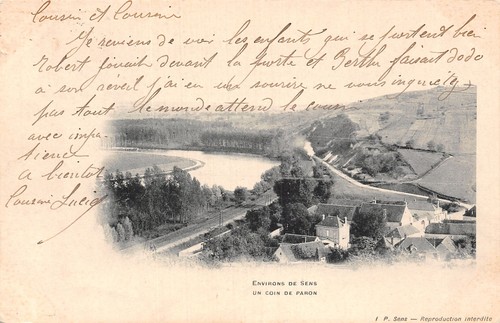 Cousin et Cousine
Je reviens de voir les enfants qui se portent bien
Robert jouait devant la porte et Berthe faisait dodo
à son réveil j'ai eu un sourire ne vous inquietez
pas tout le monde attend le cousin
avec impa
tience
a bientôt
Cousine Lucie
ENVIRONS DE SENS
UN COIN DE PARON
P. Sens — Reproduction interdite